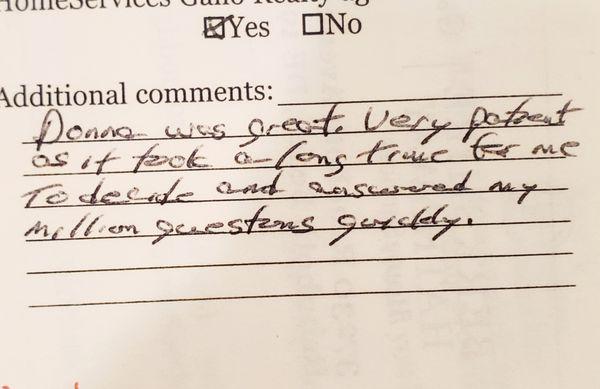 HomeServices Gallo Realty
☑Yes ☐No
Additional comments:
Donna was great. Very patient
as it took a long time for me
To decide and answered my
million questions quickly.